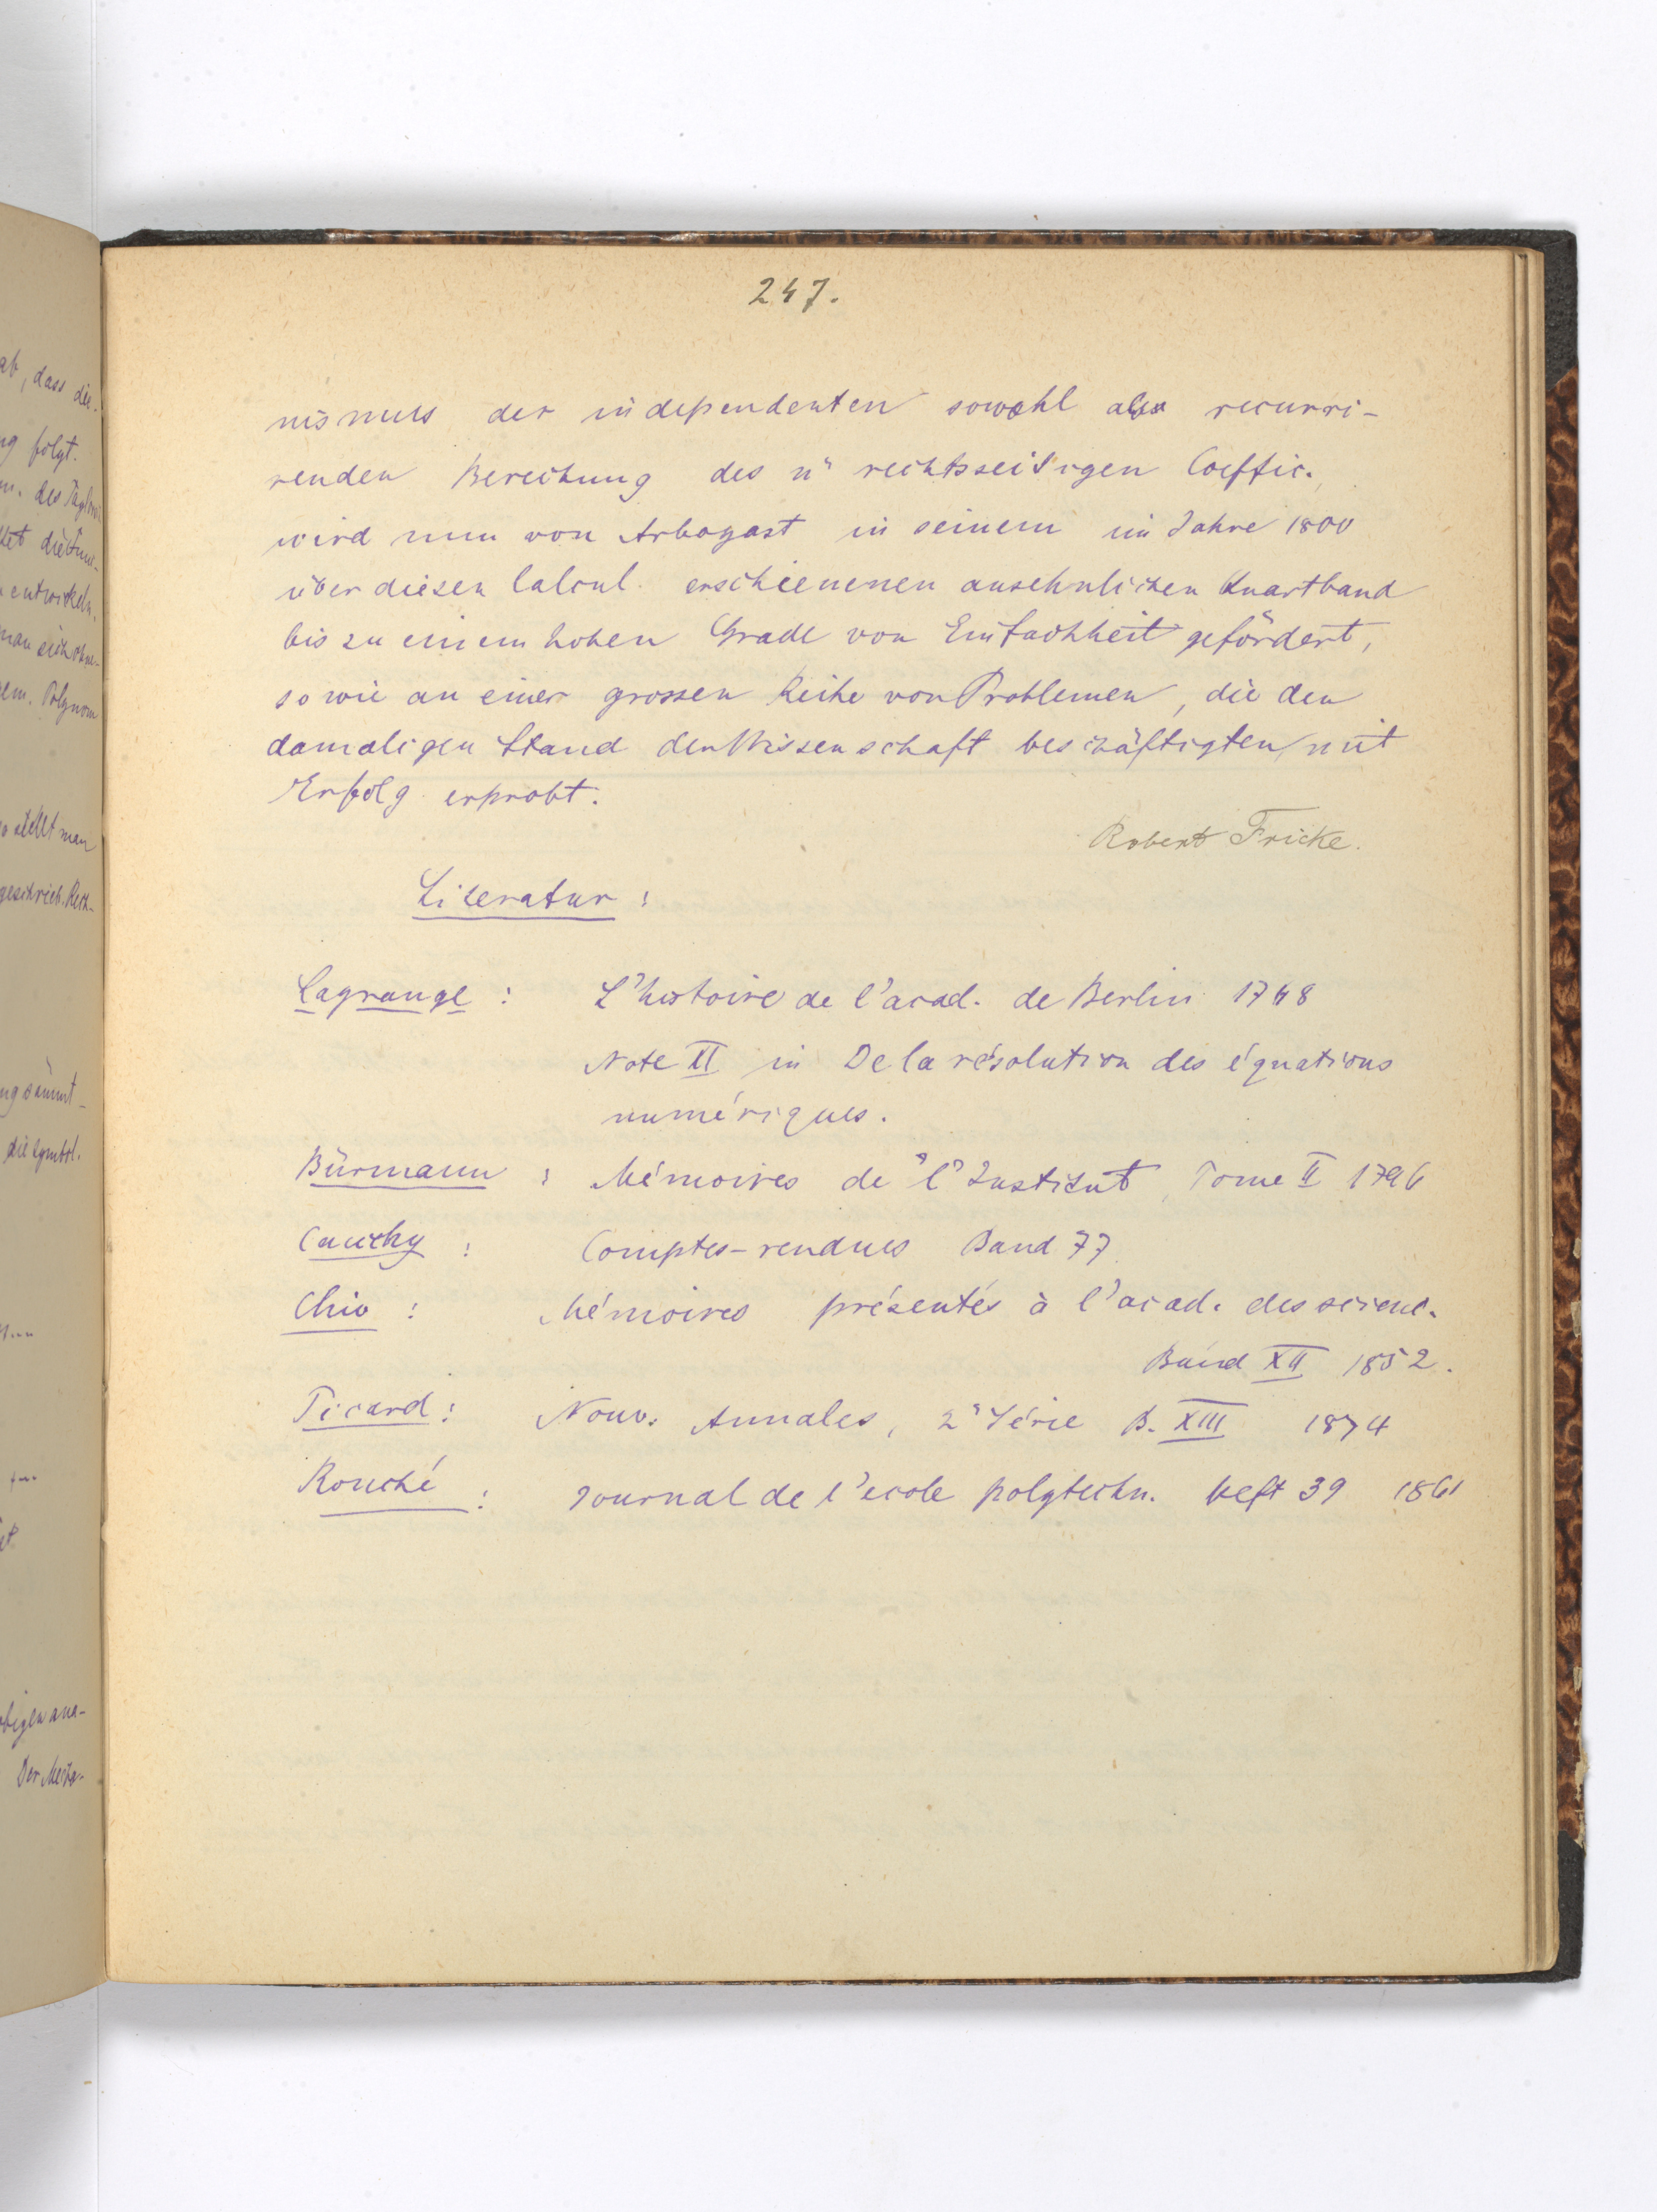 ab, dass die
ng folgt.
entwickeln,
em. Polynom
so stellt man
die symbol.
247.
nismus der independenten sowohl als recurri-
renden Berechung des nⁿ rechtsseitigen Coeffic.
wird nun von Arbogast in seinem im Jahre 1800
über diesen Calcul erschienenen ansehnlichen Quartband
bis zu einem hohen Grade von Einfachheit gefördert,
sowie an einer grossen Reihe von Problemen, die den
damaligen Stand der Wissenschaft beschäftigten, mit
Erfolg erprobt.
Robert Fricke.
Literatur:
Lagrange: L'histoire de l'acad. de Berlin 1768
Note XI in De la résolution des équations
numériques.
Bürmann: Mémoires de l'Institut, Tome II 1796
Cauchy: Comptes-rendues Band 77.
Chio: Mémoires présentés à l'acad. des scienc.
Band XII 1852.
Picard: Nouv. Annales, 2ⁿ Série B. XIII 1874
Rouché: Journal de l'ecole polytechn. Heft 39 1861